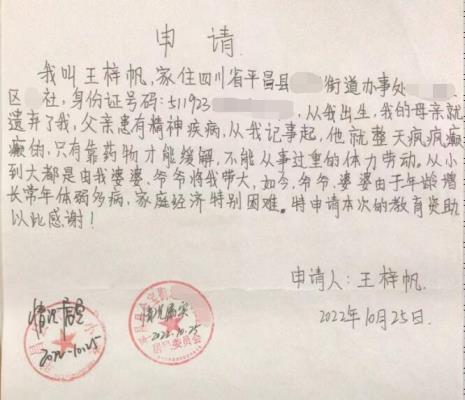 申请
我叫王梓帆,家住四川省平昌县 街道办事处
区 社,身份证号码:511923 ,从我出生,我的母亲就
遗弃了我,父亲患有精神疾病,从我记事起,他就整天疯疯癫
癫的,只有靠药物才能缓解,不能从事过重的体力劳动。从小
到大都是由我婆婆、爷爷将我带大,如今,爷爷、婆婆由于年龄增
长常年体弱多病,家庭经济特别困难。特申请本次的教育资助
以此感谢!
申请人:王梓帆.
2022年10月25日.
情况属实
2022-10.25
情况属实
2022.10.25
居民委员会